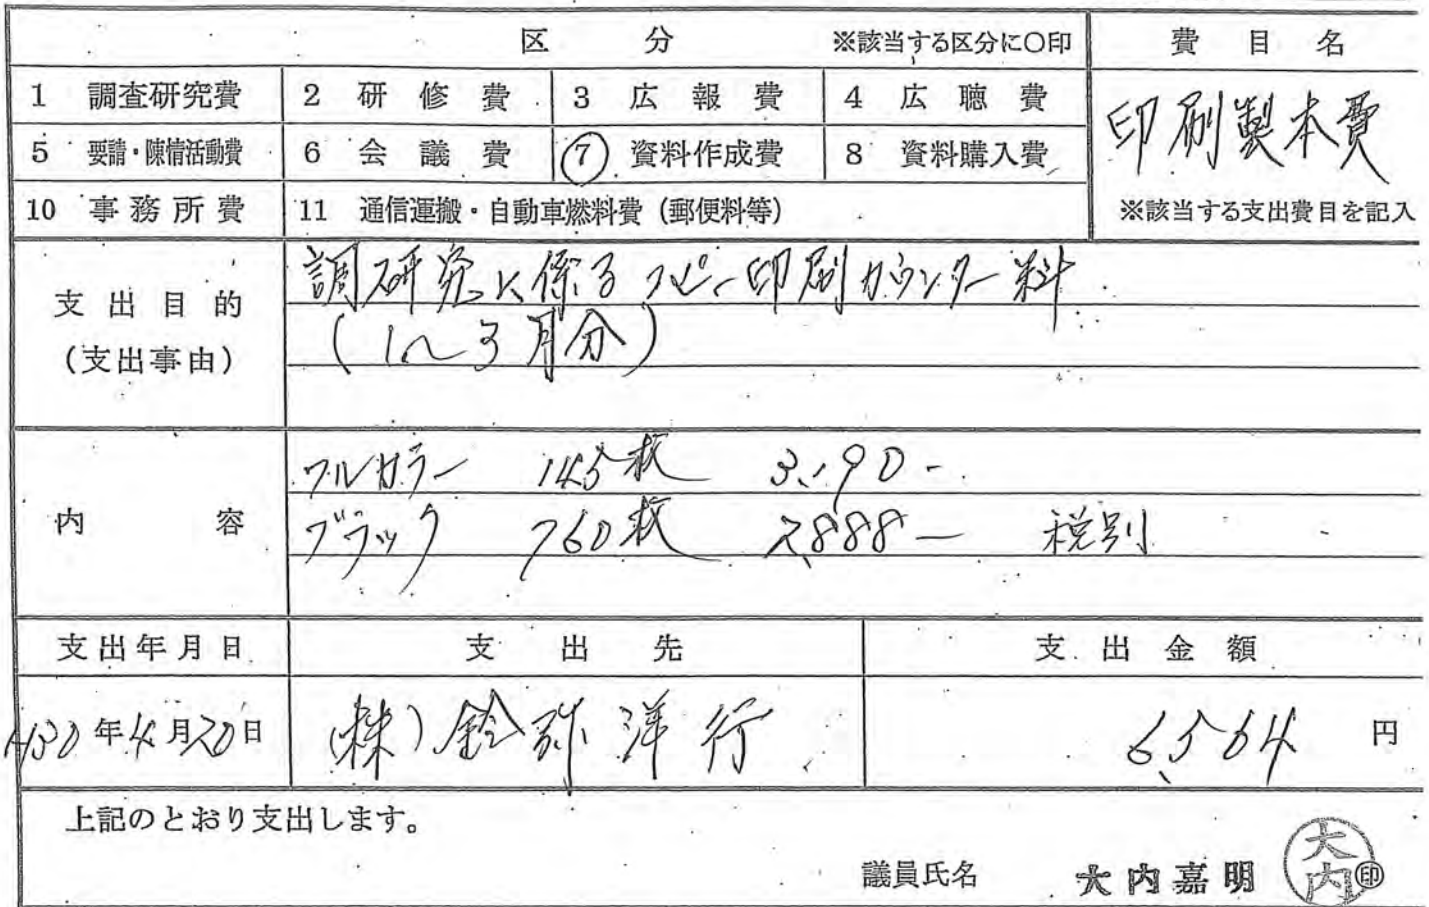 区 分 ※該当する区分に○印 費目名
1 調査研究費 2 研修費 3 広報費 4 広聴費 印刷製本費
5 要請・陳情活動費 6 会議費 ⑦ 資料作成費 8 資料購入費
10 事務所費 11 通信運搬・自動車燃料費(郵便料等) ※該当する支出費目を記入
支出目的 調研究に係るコピー印刷カウンター料
(支出事由) (1〜3月分)
内容 フルカラー 145枚 3,190-
ブラック 760枚 2,888- 税別
支出年月日 支出先 支出金額
H30年4月20日 (株)鈴弥洋行 6,564円
上記のとおり支出します。
議員氏名 大内嘉明 大内 ㊞